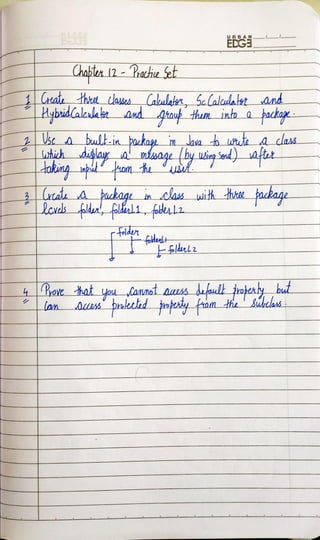 URBAN
EDGE
Chapter 12 - Practice Set
1 Create three classes Calculator, ScCalculator and
HybridCalculator and group them into a package.
2 Use a built-in package in Java to write a class
which displays a message (by using Sout) after
taking input from the user.
3 Create a package in class with three package
levels folder, folderL1, folderL2
folder
folderL1
folderL2
4 Prove that you cannot access default property but
can access protected property from the subclass.